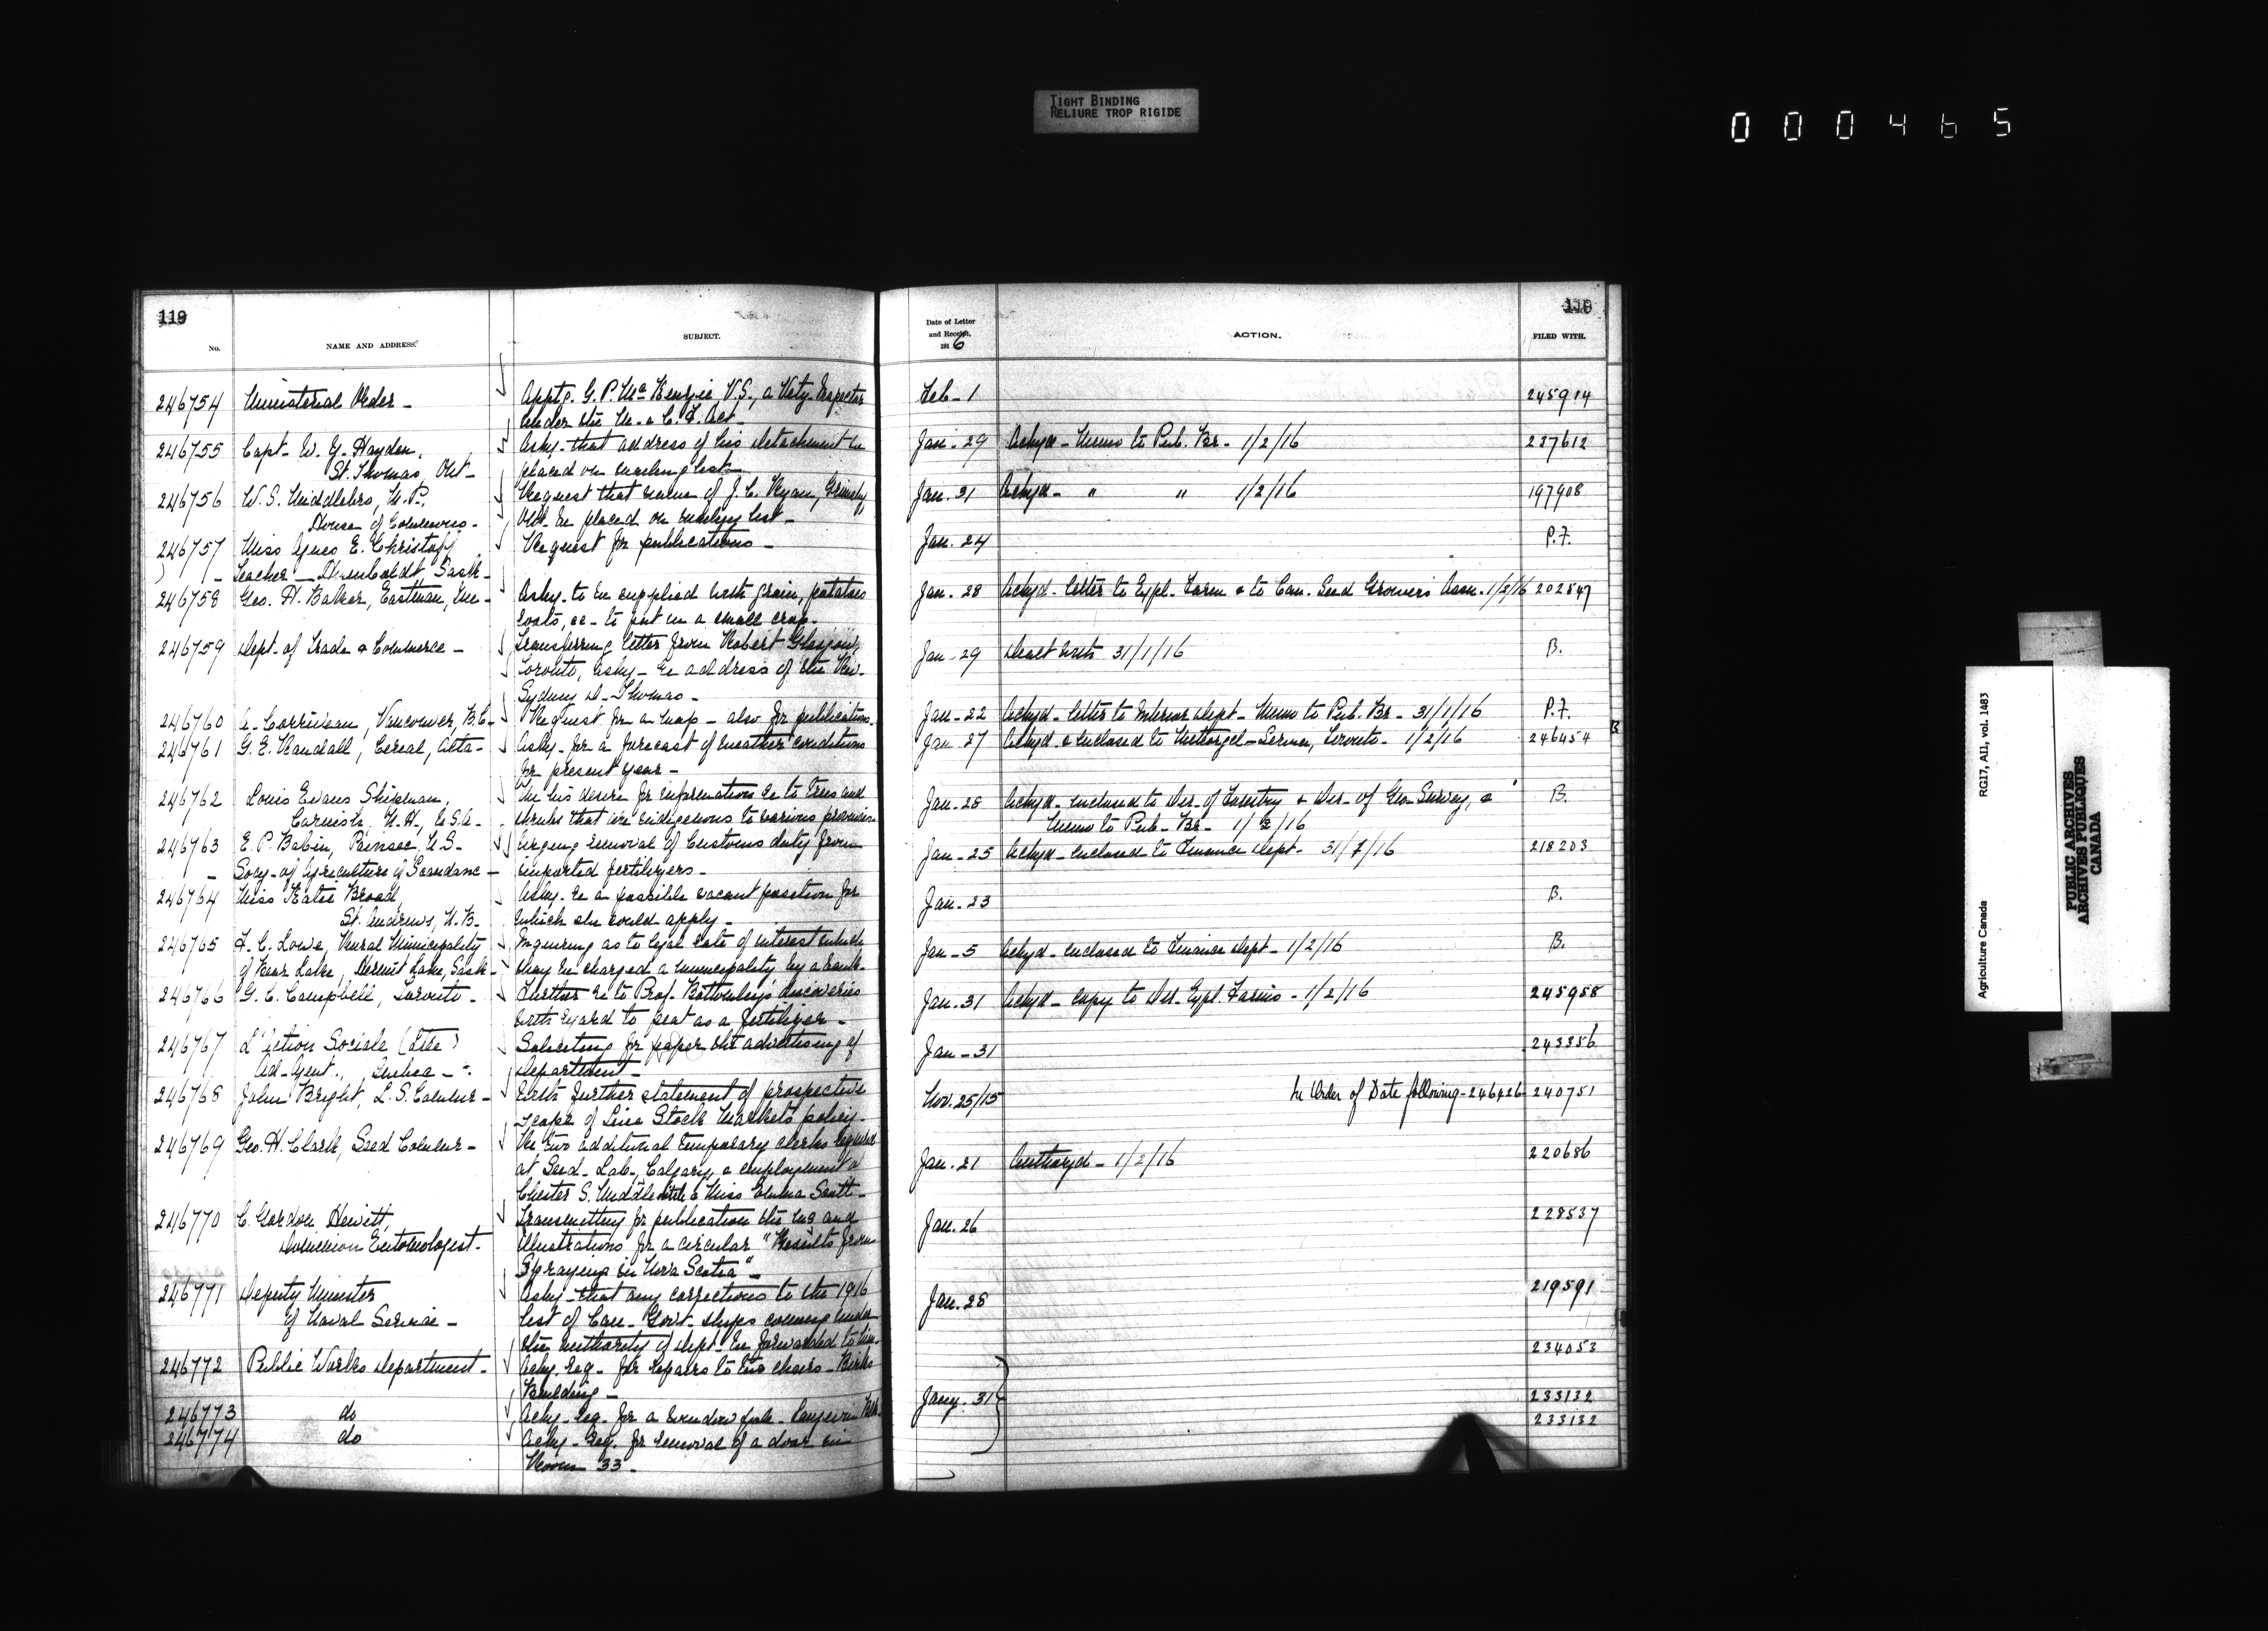 TIGHT BINDING
RELIURE TROP RIGIDE
000465
119
No.
NAME AND ADDRESS.
SUBJECT.
246754 Ministerial Order - Appt'g. G. P. McKenzie, V.S., a Vety. Inspector
under the M. & C. F. Act -
246755 Capt. W. G. Haydon, Askg. that address of his detachment be
St. Thomas, Ont - placed on mailing list -
246756 W. S. Middlebro, M.P., Request that name of J. C. Ryan, Grimsby
House of Commons - Ont. be placed on mailing list -
246757 Miss Agnes E. Request for publications -
Teacher - Humboldt Sask -
246758 Geo. H. Balker, Eastman, Askg. to be supplied with grain, potatoes
oats, &c - to put in a small crop -
246759 Dept. of Trade & Commerce - Transferring letter from Robert Glasgow,
Toronto, askg - re address of the Rev.
Sydney D. Thomas -
246760 A. Corriveau, Vancouver, B.C - Request for a map - also for publications -
246761 G. E. Randall, Cereal, Alta - Askg. for a forecast of weather conditions
for present year -
246762 Louis Evans Shipman, Re his desire for information re to trees and
Cornish, N.H., U.S.A. - shrubs that are indigenous to various provinces -
246763 E. P. Babin, Urging removal of Customs duty from
Socy. of Agriculture of imported fertilizers -
246764 Miss Katie Broad, Askg. re a possible vacant position for
St. Andrews, N.B - which she could apply -
246765 F. C. Lowe, Rural Municipality Inquiring as to legal rate of interest which
of Bear Lake, Sask - may be charged a municipality by a bank -
246766 G. C. Campbell, Toronto - Further re to Prof. Bottomley's discoveries
with regard to peat as a fertilizer -
246767 L'Action Sociale (Ltée) Soliciting for paper the advertising of
Ad. Agent., Quebec - Department -
246768 John Bright, L. S. Commr - With further statement of prospective
scope of Live Stock Markets policy -
246769 Geo. H. Clark, Seed Commr - Re two additional temporary clerks required
at Seed - Lab., Calgary, & employment of
Chester S. & Miss Emma Scott -
246770 C. Gordon Hewitt, Transmitting for publication the ms and
Dominion Entomologist - illustrations for a circular "Results from
Spraying in Nova Scotia" -
246771 Deputy Minister Askg - that any corrections to the 1916
of Naval Service - list of Can - Govt. ships coming under
the authority of Dept. be forwarded to him -
246772 Public Works Department - Askg. req. for repairs to two chairs - Birks
Building -
246773 do Askg. req. for a window Langevin Blk.
246774 do Askg - req. for removal of a door in
Room 33 -
119
Date of Letter
and Receipt,
1916
ACTION.
FILED WITH.
Feb - 1 245914
Jan - 29 Ackgd - Memo to Pub. Br. - 1/2/16 227612
Jan. 31 Ackgd - " " 1/2/16 197908
Jan. 24 P.F.
Jan. 28 Ackgd. letter to Expl. Farm & to Can. Seed Growers Assn. 1/2/16 202847
Jan - 29 Dealt with 31/1/16 B.
Jan - 22 Ackgd - letter to Interior Dept - Memo to Pub. Br - 31/1/16 P.F.
Jan 27 Ackgd. & enclosed to Service, Toronto - 1/2/16 246454 B
Jan - 28 Ackgd - enclosed to Dir. of Forestry & Dir - of Geo. Survey, & B.
Memo to Pub - Br - 1/2/16
Jan - 25 Ackgd - enclosed to Finance Dept - 31/1/16 218203
Jan - 23 B.
Jan - 5 Ackgd - enclosed to Finance Dept - 1/2/16 B.
Jan. 31 Ackgd - copy to Dir - Expl. Farms - 1/2/16 245958
Jan - 31 243356
Nov. 25/15 In Order of Date following - 246426 240751
Jan. 21 Authorzd - 1/2/16 220686
Jan. 26 228537
Jan. 28 219591
234053
Jany. 31 233132
233132
RG17, AII, vol. 1483
Agriculture Canada
PUBLIC ARCHIVES
ARCHIVES PUBLIQUES
CANADA